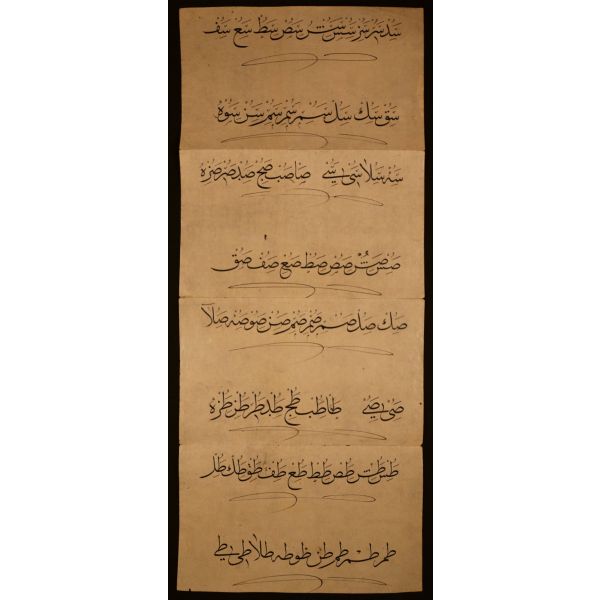 سد سر سس ستر سص سط سع سف
سق سك سل سم سم سم سن سو ه
سه سلا سى سے صا صب صج صد صر صز ه
صس صتر صص صط صع صف صق
صك صل صم صم صم صن صو صه صلا
صى صے طا طب طج طد طر طز طر ه
طس طتر طص طط طع طف طق طك طل
طم طم طم طن طو طه طلا طى طے